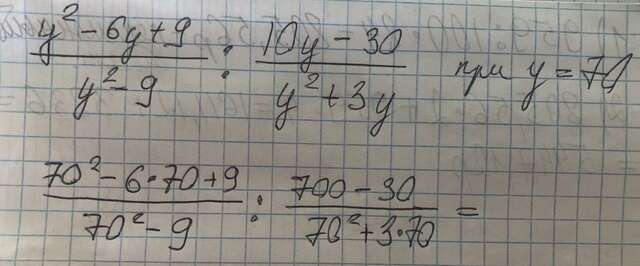 y² - 6y + 9 / y² - 9 : 10y - 30 / y² + 3y при y = 70
70² - 6·70 + 9 / 70² - 9 : 700 - 30 / 70² + 3·70 =